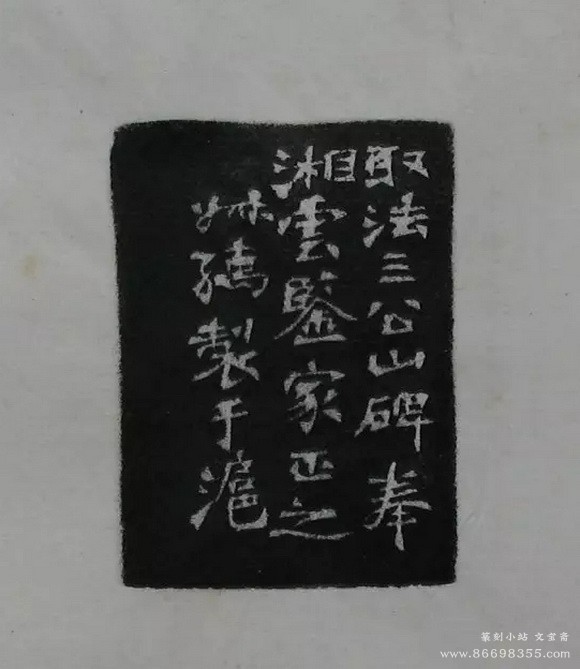 取法三公山碑奉
湘雲鑒家正之
製于滬
篆刻小站 文宝斋
www.86698355.com